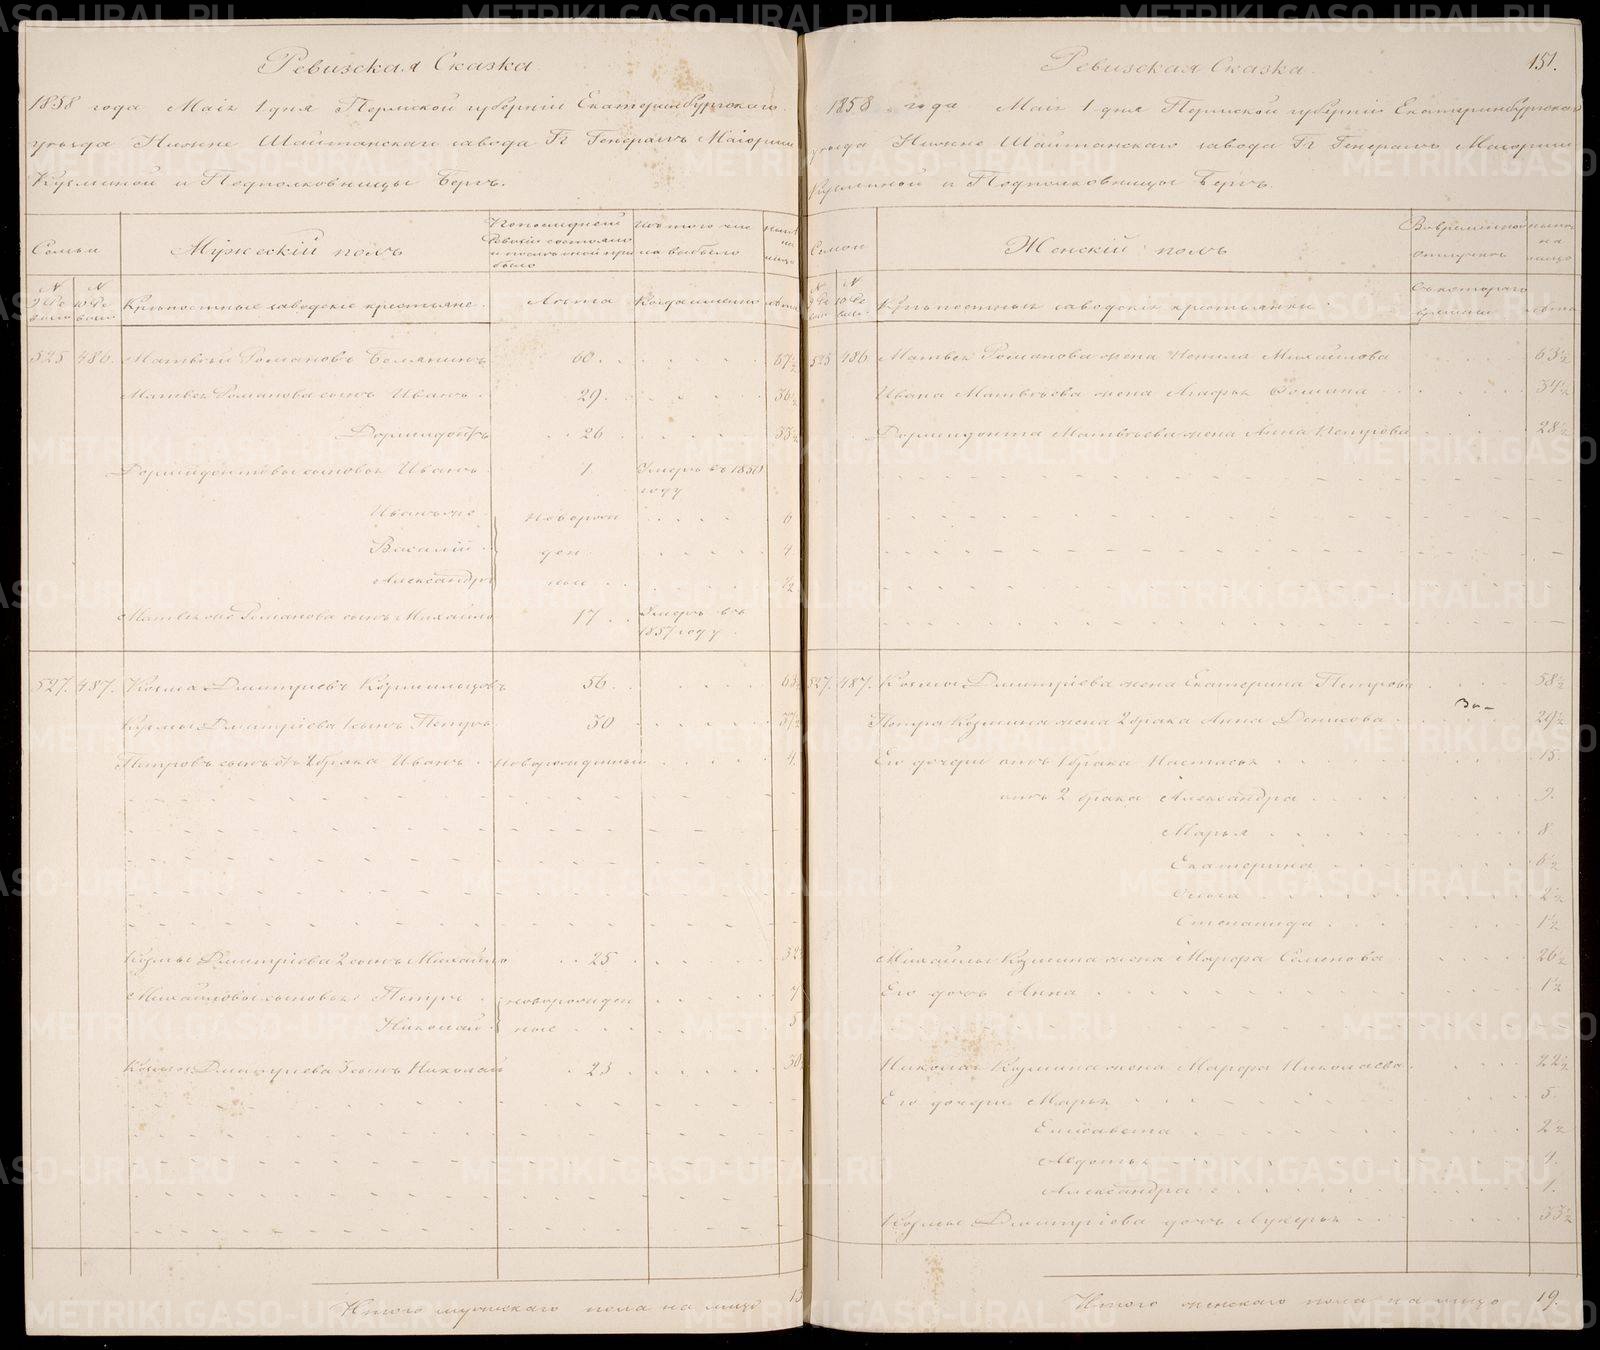 Ревизская Сказка
1858 года Маія 1 дня Пермской губерніи Екатеринбургскаго
уѣзда Нижне Шайтанскаго завода Гг Генералъ Маіорши
Кузьминой и Подполковницы Бергъ.
Семьи
Мужескій полъ
№ 9 Ре
визіи
№ 10 Ре
визіи
Крѣпостные заводскіе крестьяне.
Лѣта
Когда именно
лѣта
525 486. Матвѣй Романовъ 60. 67½
Матвѣя Романова сынъ Иванъ. 29. 36½
Дормидонтъ 26 33½
Дормидонтовы сыновья Иванъ 1 Умеръ въ 1850
году
Иванъ же новорож 6
Василій ден 4
Александръ ные ½
Матвѣя Романова сынъ Михайло 17 Умеръ въ
1857 году
527. 487. Козма Дмитріевъ Кормильцовъ 56. 63½
Кузмы Дмитріева 1 сынъ Петръ 30 37½
Петровъ сынъ отъ 2 брака Иванъ новорожденный 4.
Козмы Дмитріева 2 сынъ Михайло 25 32½
Михайловы сыновья Петръ новорожден 7
Николай ные 5
Козмы Дмитріева 3 сынъ Николай 23 30½
Итого мужскаго пола на лицо 13
Ревизская Сказка.
151.
1858 года Маія 1 дня Пермской губерніи Екатеринбургскаго
уѣзда Нижне Шайтанскаго завода Гг Генералъ Маіорши
Кузьминой и Подполковницы Бергъ.
Семьи
Женскій полъ
Во временной
отлучкѣ
на
лицо
№ 9 Ре
визіи
№ 10 Ре
визіи
Крѣпостныя заводскія крестьянки.
Съ котораго
времени
лѣта
525 486 Матвѣя Романова жена Ненила Михайлова 63½
Ивана Матвѣева жена Агафья 34½
Дормидонта Матвѣева жена Анна Петрова 28½
527. 487. Козмы Дмитріева жена Екатерина Петрова 58½
Петра Козмина жена 2 брака Анна Денисова 29½
Его дочери отъ 1 брака Настасья 15.
отъ 2 брака Александра 9.
Марья 8
Екатерина 6½
Ольга 2½
Степанида 1½
Михайлы Кузмина жена Марфа Семенова 26½
Его дочь Анна 1½
Николая Кузмина жена Марфа Николаева. 22½
Его дочери Марья 5.
Елисавета 2½
Авдотья 4.
Александра 1.
Козмы Дмитріева дочь Лукерья 33½
Итого женскаго пола на лицо 19.
METRIKI.GASO-URAL.RU